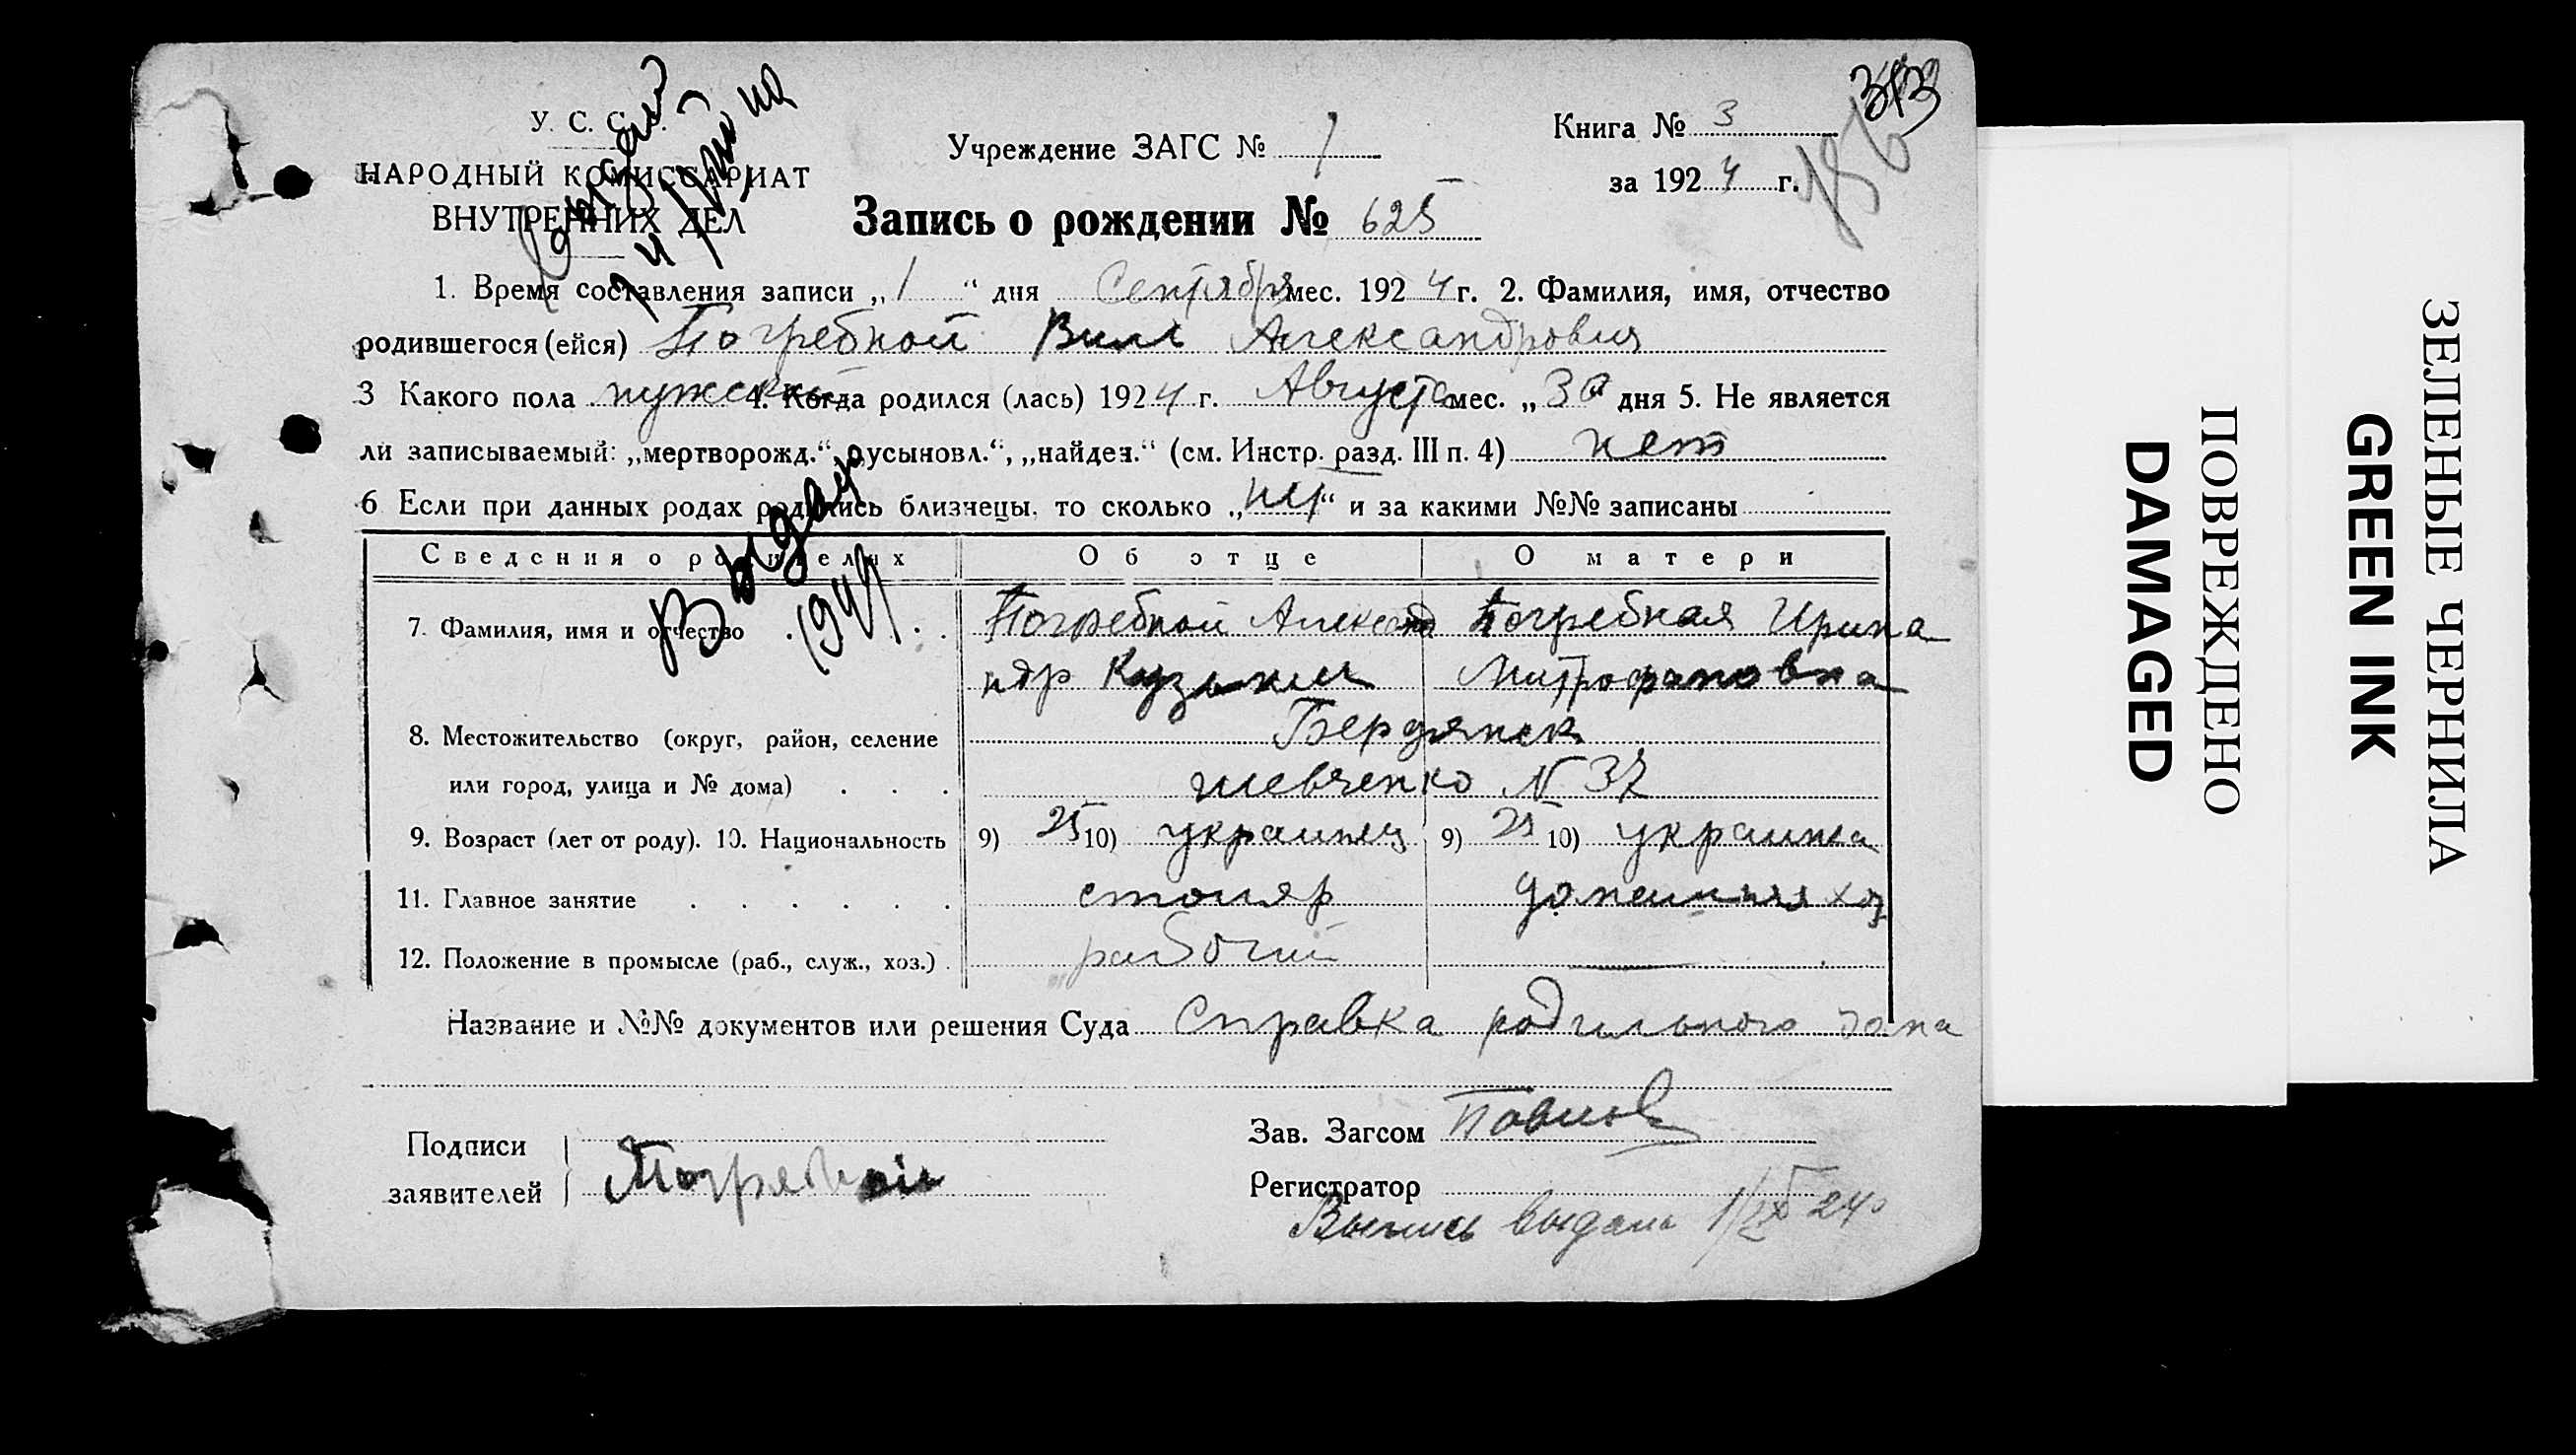 У. С. С.
НАРОДНЫЙ КОМИССАРИАТ
ВНУТРЕННИХ ДЕЛ
Учреждение ЗАГС № 1
Книга № 3
за 1924 г.
Запись о рождении № 625
1. Время составления записи „1“ дня Сентября мес. 1924 г. 2. Фамилия, имя, отчество
родившегося (ейся) Погребной Вилл Александрович
3 Какого пола мужской 4. Когда родился (лась) 1924 г. Августа мес. „30“ дня 5. Не является
ли записываемый: „мертворожд.“, „усыновл.“, „найден.“ (см. Инстр. разд. III п. 4) нет
6 Если при данных родах родились близнецы, то сколько „нет“ и за какими №№ записаны
Сведения о родителях Об отце О матери
7. Фамилия, имя и отчество Погребной Алексан Погребная Ирина
ндр Кузьмич Митрофановна
8. Местожительство (округ, район, селение Бердянск
или город, улица и № дома) Шевченко N 37
9. Возраст (лет от роду). 10. Национальность 9) 25 10) украинец 9) 25 10) украинка
11. Главное занятие столяр домашняя хоз
12. Положение в промысле (раб., служ., хоз.) рабочий —
Название и №№ документов или решения Суда Справка родильного дома
Подписи
заявителей Погребной
Зав. Загсом Павлов
Регистратор
Выпись выдана 1/IX 24
ЗЕЛЕНЫЕ ЧЕРНИЛА
GREEN INK
ПОВРЕЖДЕНО
DAMAGED